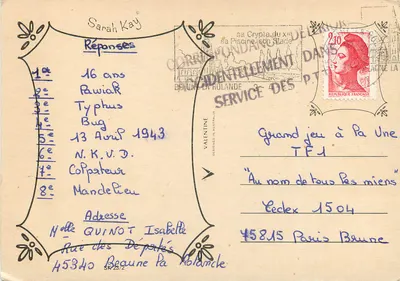 Sarah Kay
Réponses
1re 16 ans
2e Pawiak
3e Typhus
4e Bug
5e 13 Avril 1943
6e N.K.V.D.
7e Colporteur
8e Mandelieu
Adresse
Melle QUINOT Isabelle
Rue des Déportés
45340 Beaune la Rolande
VALENTINE
sa Crypte
LA ROLANDE
CORRESPONDANCE
ACCIDENTELLEMENT DANS
SERVICE DES P.T.T.
2,20
Grand jeu à la Une
TF1
"Au nom de tous les miens"
Cedex 1504
75815 Paris Brune